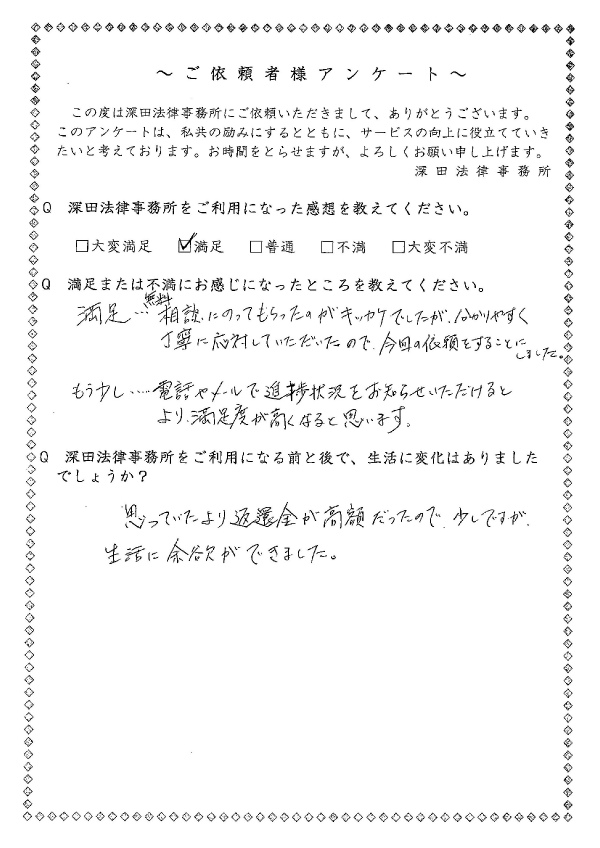 ～ご依頼者様アンケート～
この度は深田法律事務所にご依頼いただきまして、ありがとうございます。
このアンケートは、私共の励みにするとともに、サービスの向上に役立てていき
たいと考えております。お時間をとらせますが、よろしくお願い申し上げます。
深田法律事務所
Q 深田法律事務所をご利用になった感想を教えてください。
□大変満足 ☑満足 □普通 □不満 □大変不満
Q 満足または不満にお感じになったところを教えてください。
満足…無料相談にのってもらったのがキッカケでしたが、分かりやすく
丁寧に応対していただいたので、今回の依頼をすることに
しました。
もう少し……電話やメールで進捗状況をお知らせいただけると
より、満足度が高くなると思います。
Q 深田法律事務所をご利用になる前と後で、生活に変化はありました
でしょうか？
思っていたより返還金が高額だったので、少しですが、
生活に余欲ができました。